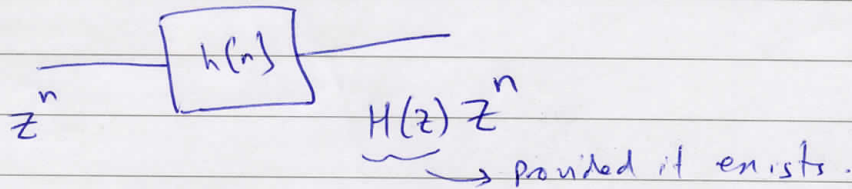 h(n)
zⁿ
H(z) zⁿ
→ provided it exists.